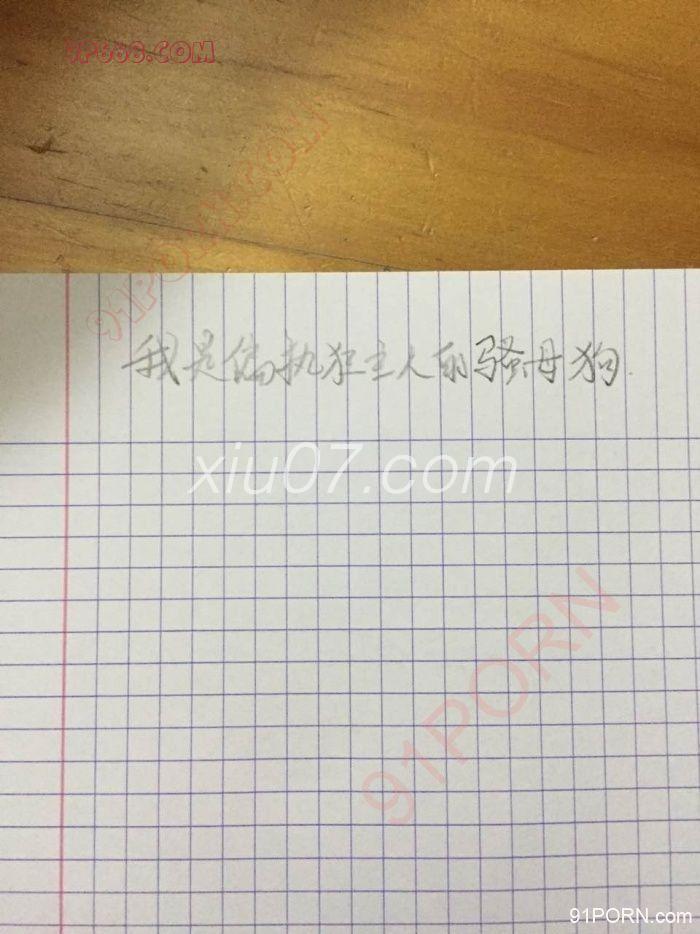 9P666.COM
91PORN.COM
我是偏执狂主人的骚母狗.
xiu07.com
91PORN
91PORN.com